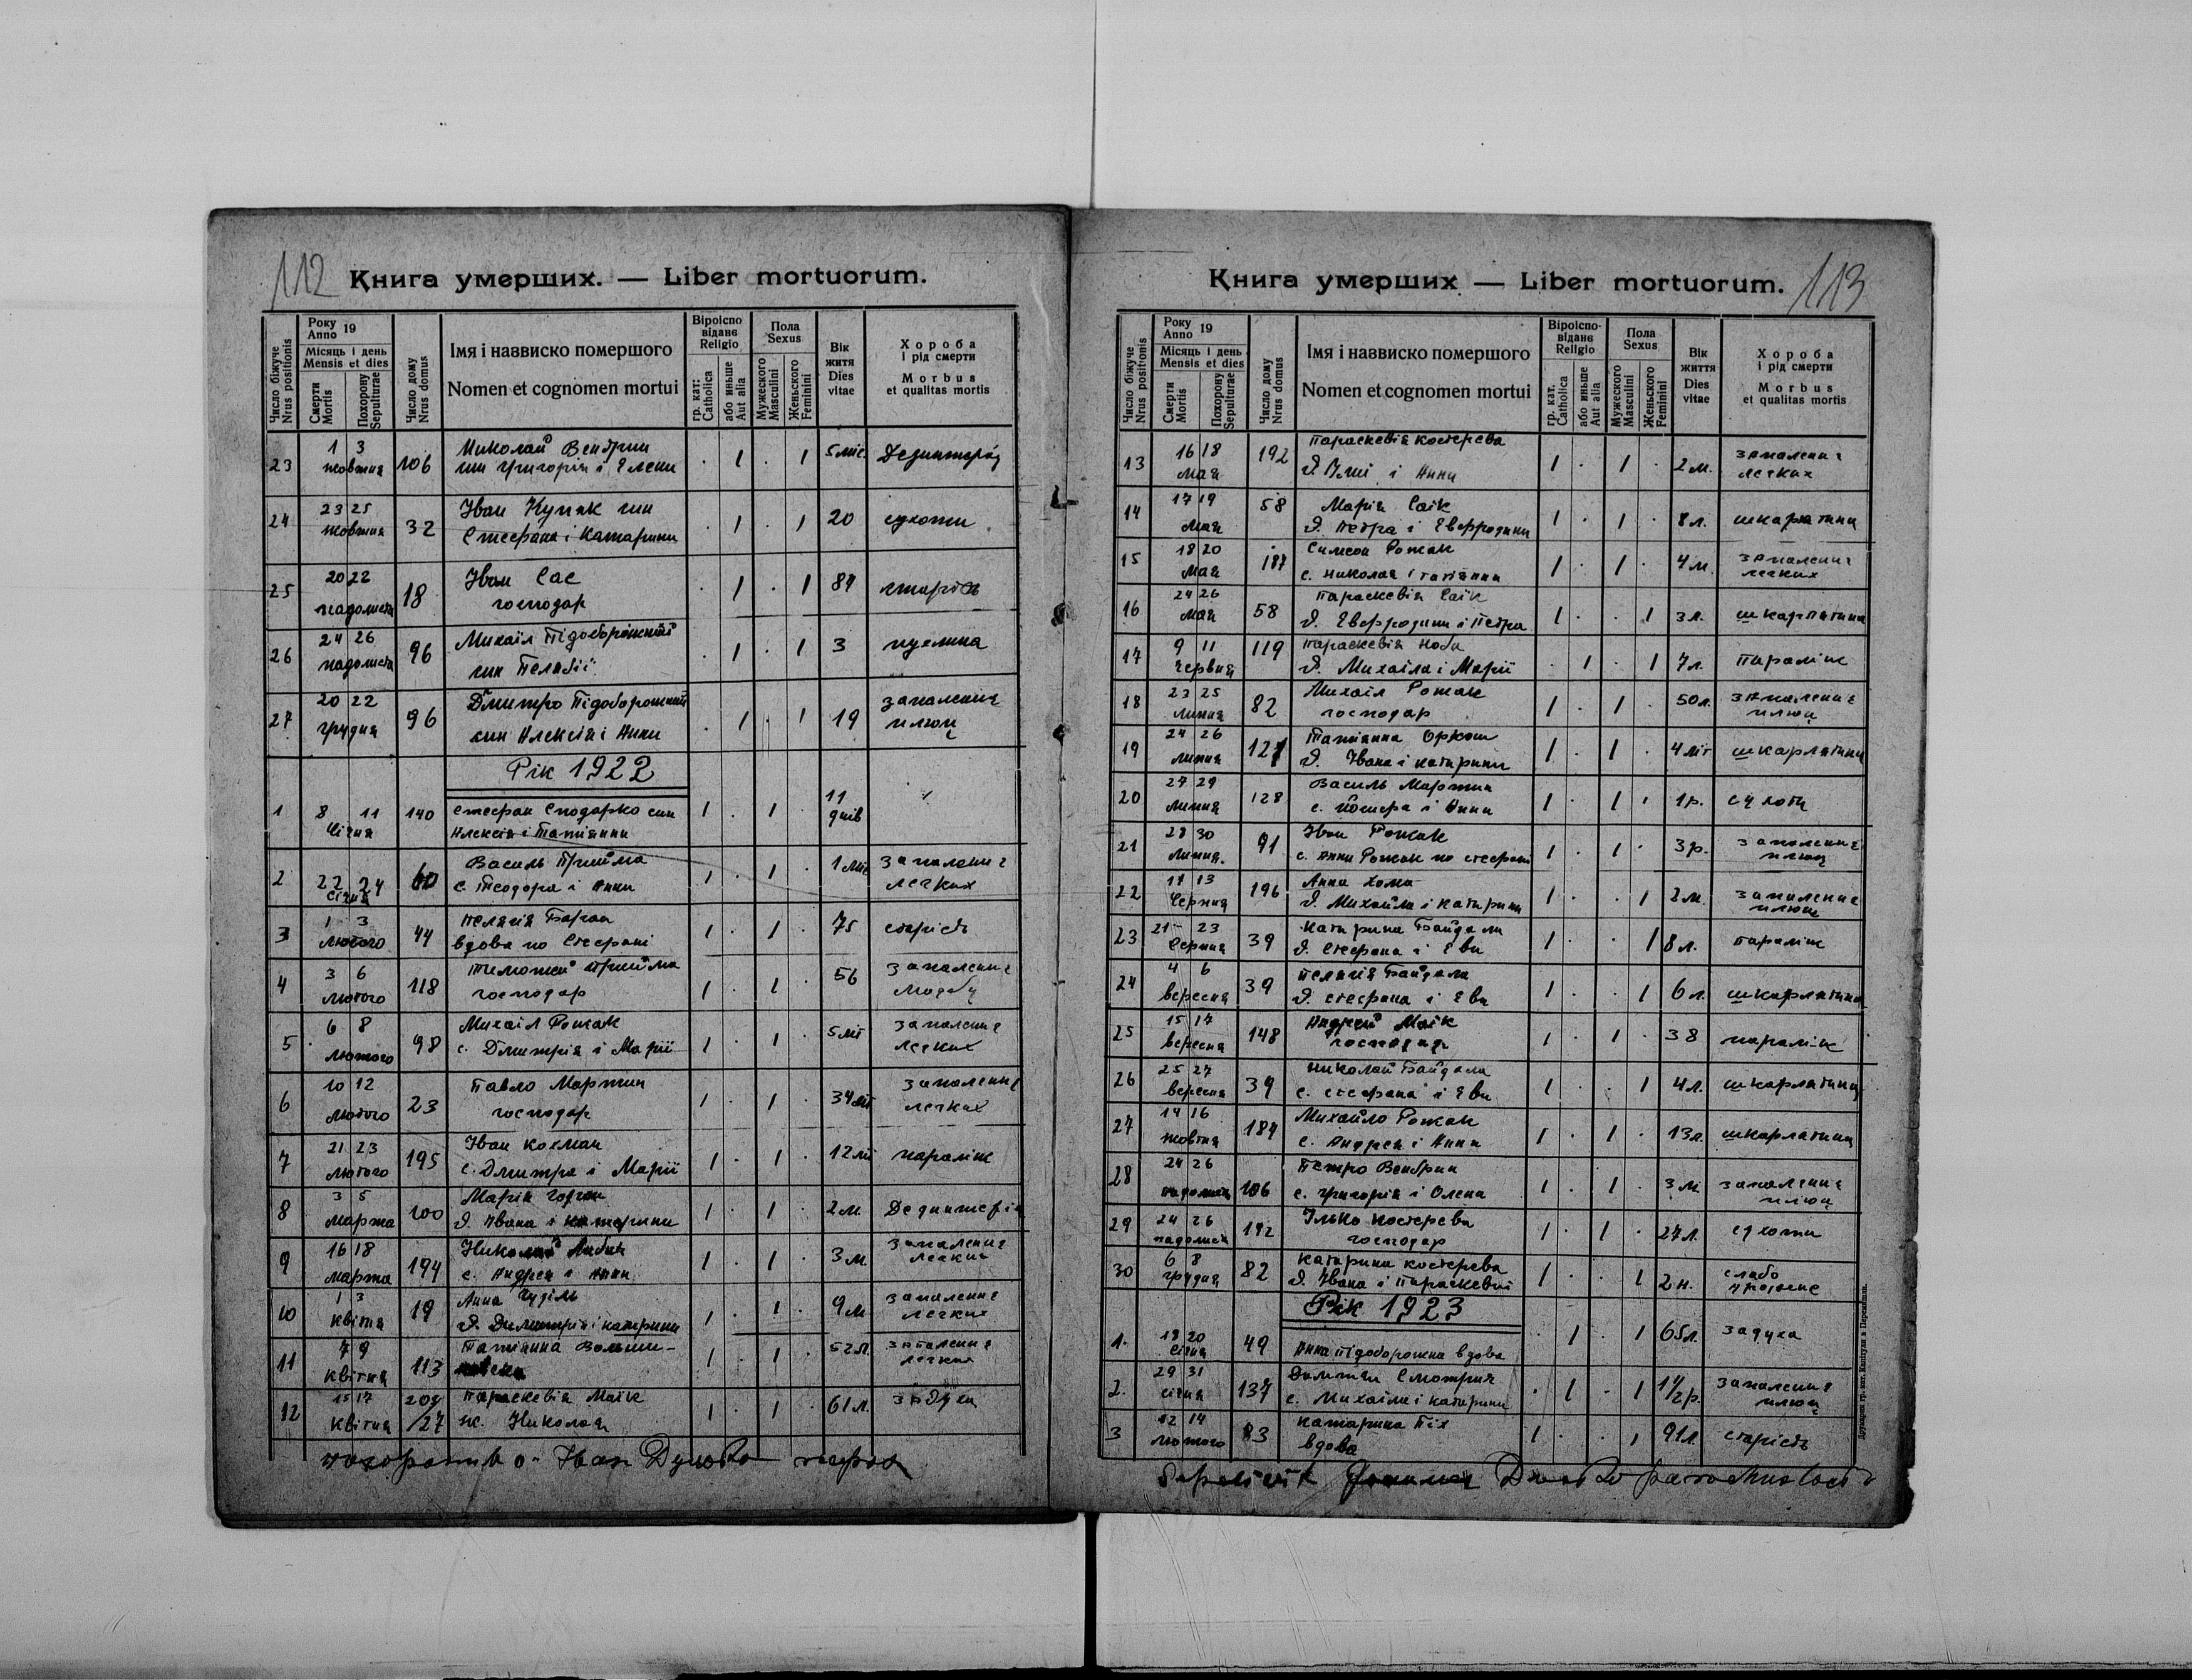 112
Книга умерших. — Liber mortuorum.
Число біжуче Nrus positionis
Року Anno 19
Місяць і день Mensis et dies
Смерти Mortis
Похорону Sepulturae
Число дому Nrus domus
Імя і назвиско помершого
Nomen et cognomen mortui
Віроіспо відане Religio
гр. кат: Catholica
або иньше Aut alia
Пола Sexus
Мужеского Masculini
Женьского Feminini
Вік життя Dies vitae
Хороба і рід смерти
Morbus et qualitas mortis
23 1 3 жовтня 106 Миколай Вендрин . 1 . 1 5 міс.
син Григорія і Елени
24 23 25 жовтня 32 Іван Кутяк син . 1 . 1 20 сухоти
Стефана і Катарини
25 20 22 падолиста 18 Іван Сас . 1 . 1 старість
господар
26 24 26 падолиста 96 Михаіл Підоборожний . 1 . 1 3
син Пелаґії
27 20 22 грудня 96 Дмитро Підоборожний . 1 . 1 19 запалення
син Алексія і Анни плюц
Рік 1922
1 8 11 Січня 140 Стефан Сподарко син 1 . 1 . 11 днів
Алексія і Татіянни
2 22 24 січня 60 Василь Прийма 1 . 1 . 1 міс запаленнє
с. Теодора і Анни легких
3 1 3 лютого 44 Пелягія Баран 1 . 1 . 75 старість
вдова по Стефані
4 3 6 лютого 118 Тимотей Прийма 1 . 1 . 56 запаленнє
господар
5 6 8 лютого 98 Михаіл Рожак 1 . 1 . 5 літ запаленнє
с. Дмитрія і Марії легких
6 10 12 лютого 23 Павло Мартин 1 . 1 . 34 літ запаленнє
господар легких
7 21 23 лютого 195 Іван Кохман 1 . 1 . 12 літ параліж
с. Дмитра і Марії
8 3 5 марта 100 Марія 1 . 1 . 2 м. Дезинтерія
д. Івана і Катерини
9 16 18 марта 194 Николай 1 . 1 . 3 м. запаленнє
с. Андрея і Анни легких
10 1 3 квітня 19 Анна 1 . 1 . 9 м запаленнє
д. Димитрія і Катерини легких
11 7 9 квітня 113 Татіянна 1 . 1 . 52 л. запаленнє
легких
12 15 17 квітня 202/27 Параскевія Маїк 1 . 1 . 61 л. задуха
ж. Николая
похоронив о. Іван
113
Книга умерших — Liber mortuorum.
Число біжуче Nrus positionis
Року Anno 19
Місяць і день Mensis et dies
Смерти Mortis
Похорону Sepulturae
Число дому Nrus domus
Імя і назвиско помершого
Nomen et cognomen mortui
Віроіспо- відане Religio
гр. кат. Catholica
або иньше Aut alia
Пола Sexus
Мужеского Masculini
Женьского Feminini
Вік життя Dies vitae
Хороба і рід смерти
Morbus et qualitas mortis
13 16 18 мая 192 Параскевія Костерева 1 . 1 . 2 м. запаленнє
д. Ілиї і Анни легких
14 17 19 мая 58 Марія Саїк 1 . 1 . 8 л. шкарлятина
д. Петра і Евфродини
15 18 20 мая 187 Симеон Рожак 1 . 1 . 4 м. запаленнє
с. Николая і Татіянни легких
16 24 26 мая 58 Параскевія Саїк 1 . . 1 3 л. шкарлятина
д. Евфродини і Петра
17 9 11 червня 119 Параскевія . 1 . 1 7 л. параліж
д. Михаіла і Марії
18 23 25 липня 82 Михаіл Рожак 1 . 1 . 50 л. запаленнє
господар плюц
19 24 26 липня 121 Татіянна 1 . 1 . 4 літ шкарлятина
д. Івана і Катарини
20 27 29 липня 128 Василь Мартин 1 . 1 . 1 р. сухоти
с. Йосифа і Анни
21 28 30 липня. 91 Іван Рожак 1 . 1 . 3 р. запаленнє
с. Анни Рожак по Стефані плюц
22 11 13 Серпня 196 Анна Хома 1 . . 1 2 м. запаленнє
д. Михайла і Катарини плюц
23 21 23 Серпня 39 Катарина Байдала 1 . . 1 8 л. параліж
д. Стефана і Еви
24 4 6 вересня 39 Пелягія Байдала 1 . . 1 6 л. шкарлятина
д. Стефана і Еви
25 15 17 вересня 148 Андрей Маїк 1 . 1 . 38 параліж
господар
26 25 27 вересня 39 Николай Байдала 1 . . 1 4 л. шкарлятина
с. Стефана і Еви
27 14 16 жовтня 187 Михайло Рожак 1 . 1 . 13 л. шкарлятина
с. Андрея і Анни
28 24 26 падолиста 106 Петро Вендрин 1 . 1 . 3 м запаленнє
с. Григорія і Олена плюц
29 24 26 падолиста 192 Ілько Костерева 1 . 1 . 27 л. сухоти
господар
30 6 8 грудня 82 Катарина Костерева 1 . . 1 2 н. слабо
д. Івана і Параскевії
Рік 1923
1. 18 20 січня 49 Анна Підоборожна вдова . 1 . 1 65 л. задуха
2. 29 31 січня 137 Дамян Смотрич . 1 . 1 1 1/2 р. запаленнє
с. Михаіла і Катарини плюц
3 12 14 лютого 83 Катарина Піх 1 . . 1 91 л. старість
вдова